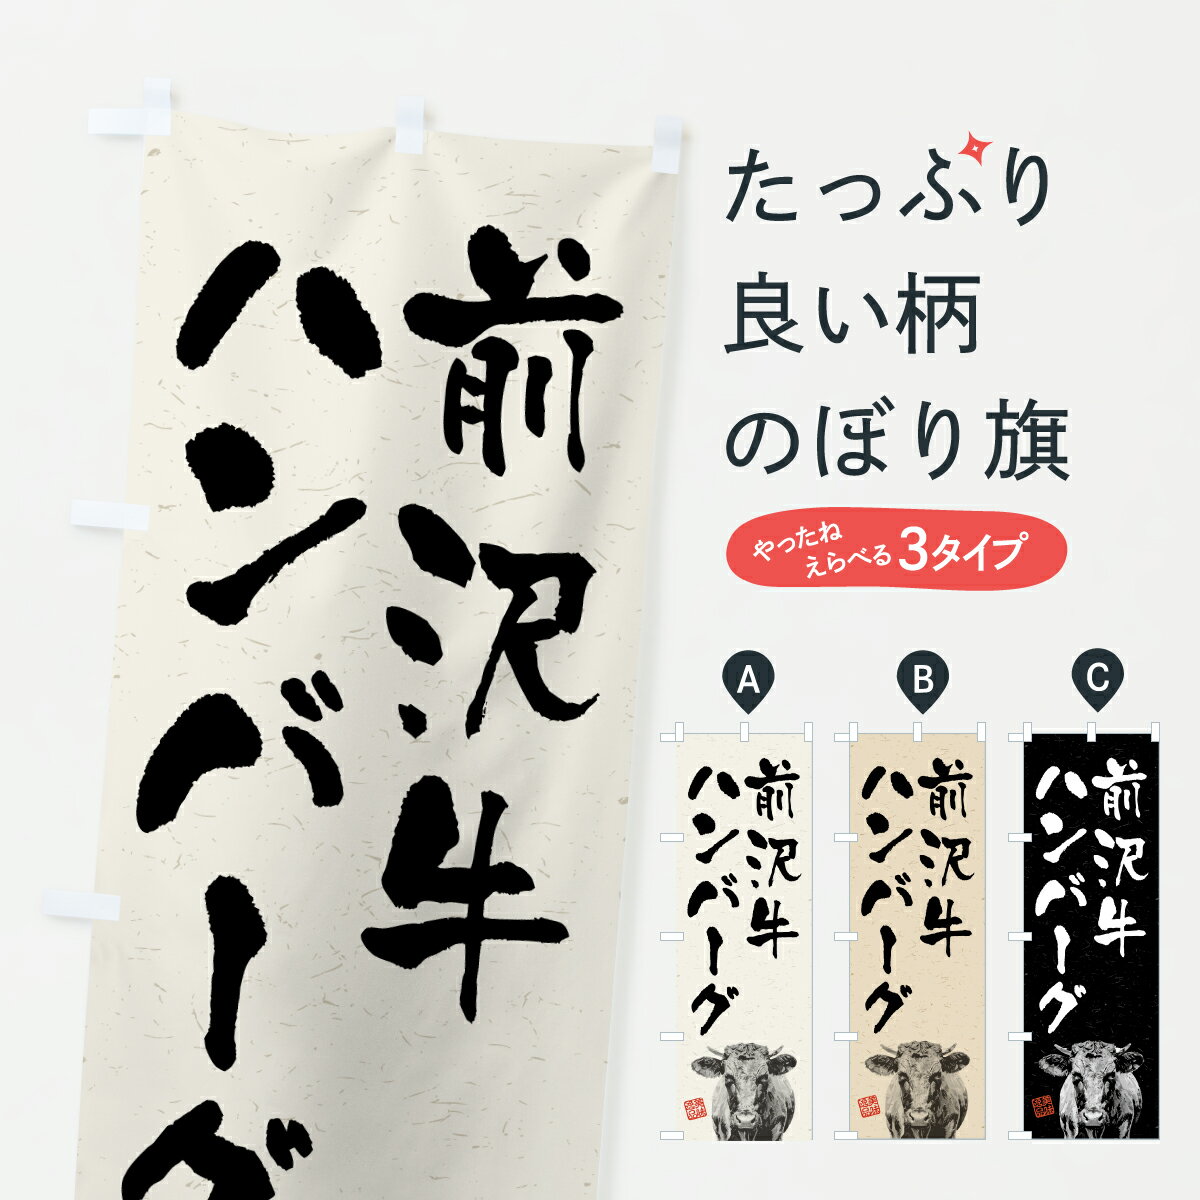 前沢牛
ハンバーグ
たっぷり
良い柄
のぼり旗
やったね
えらべる
3タイプ
A
B
C
前沢牛
ハンバーグ
前沢牛
ハンバーグ
前沢牛
ハンバーグ